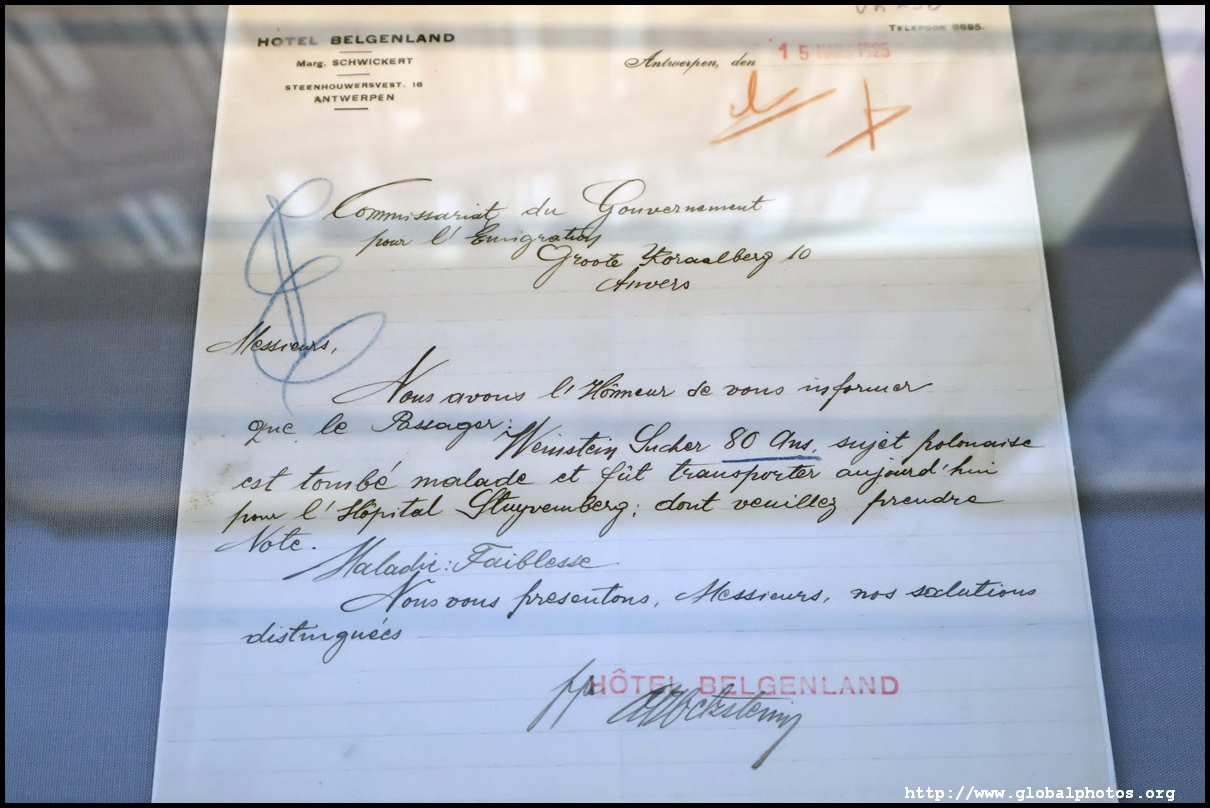 TELEFOON 9885.
HOTEL BELGENLAND
Marg. SCHWICKERT
STEENHOUWERSVEST. 16
ANTWERPEN
Antwerpen, den 15 MARS 1925
Commissariat du Gouvernement
pour l'Emigration
Groote Koraalberg 10
Anvers
Messieurs,
Nous avons l'Hônneur de vous informer
que le Passager:
Weinstein Sucher 80 Ans, sujet polonaise
est tombé malade et fût transporter aujourd'hui
pour l'Hôpital Stuyvemberg; dont veuillez prendre
Note.
Maladie: Faiblesse
Nous vous présentons, Messieurs, nos salutations
distinguées
pp HÔTEL BELGENLAND
http://www.globalphotos.org